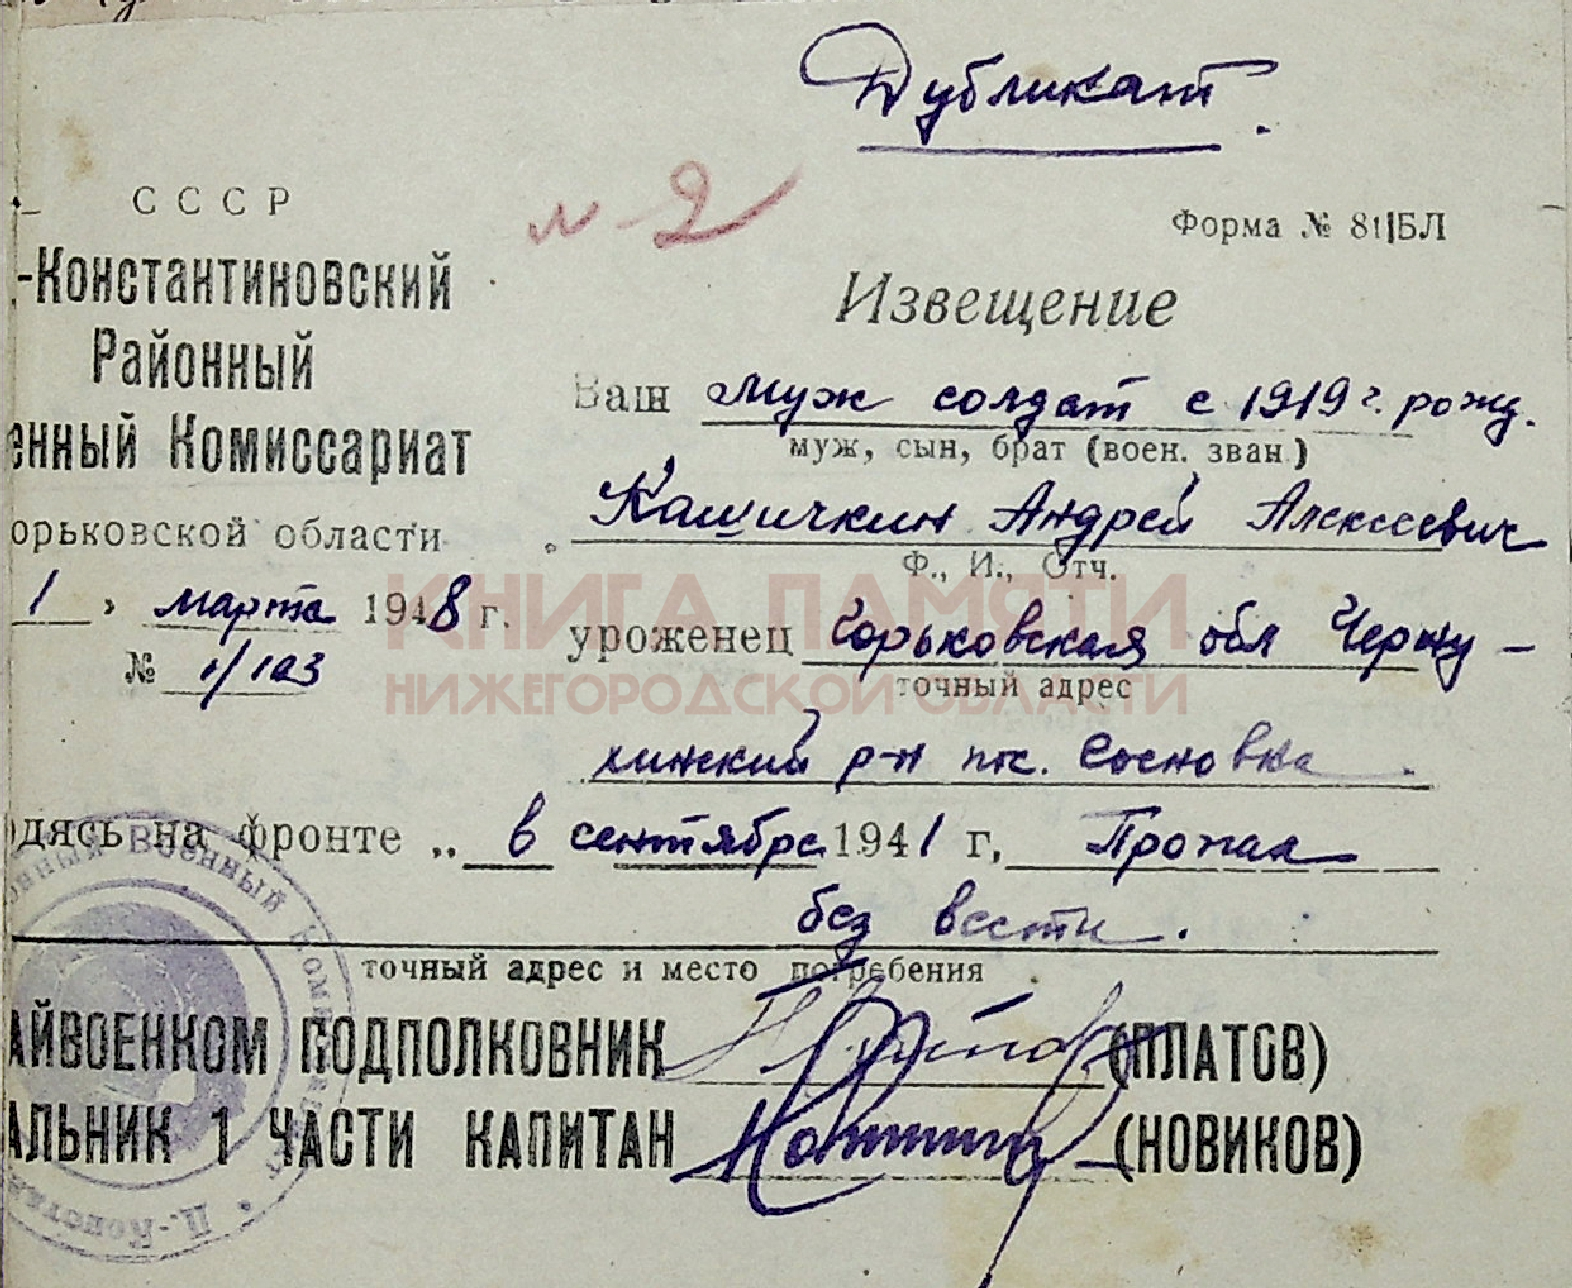 Дубликат.
СССР
№ 2
Форма № 81|БЛ
-Константиновский
Районный
енный Комиссариат
орьковской области
1 " марта 1948 г.
№ 1/103
Извещение
Ваш муж солдат с 1919 г. рожд.
муж, сын, брат (воен. зван.)
Кашичкин Андрей Алексеевич
Ф., И., Отч.
уроженец Горьковская обл Черну-
точный адрес
хинский р-н пос. Сосновка.
одясь на фронте „ в сентябре 1941 г, Пропал
без вести.
точный адрес и место погребения
АЙВОЕНКОМ ПОДПОЛКОВНИК (ПЛАТОВ)
АЛЬНИК 1 ЧАСТИ КАПИТАН (НОВИКОВ)
КНИГА ПАМЯТИ
НИЖЕГОРОДСКОЙ ОБЛАСТИ
онный Военный Комиссариат • Д.-Констан